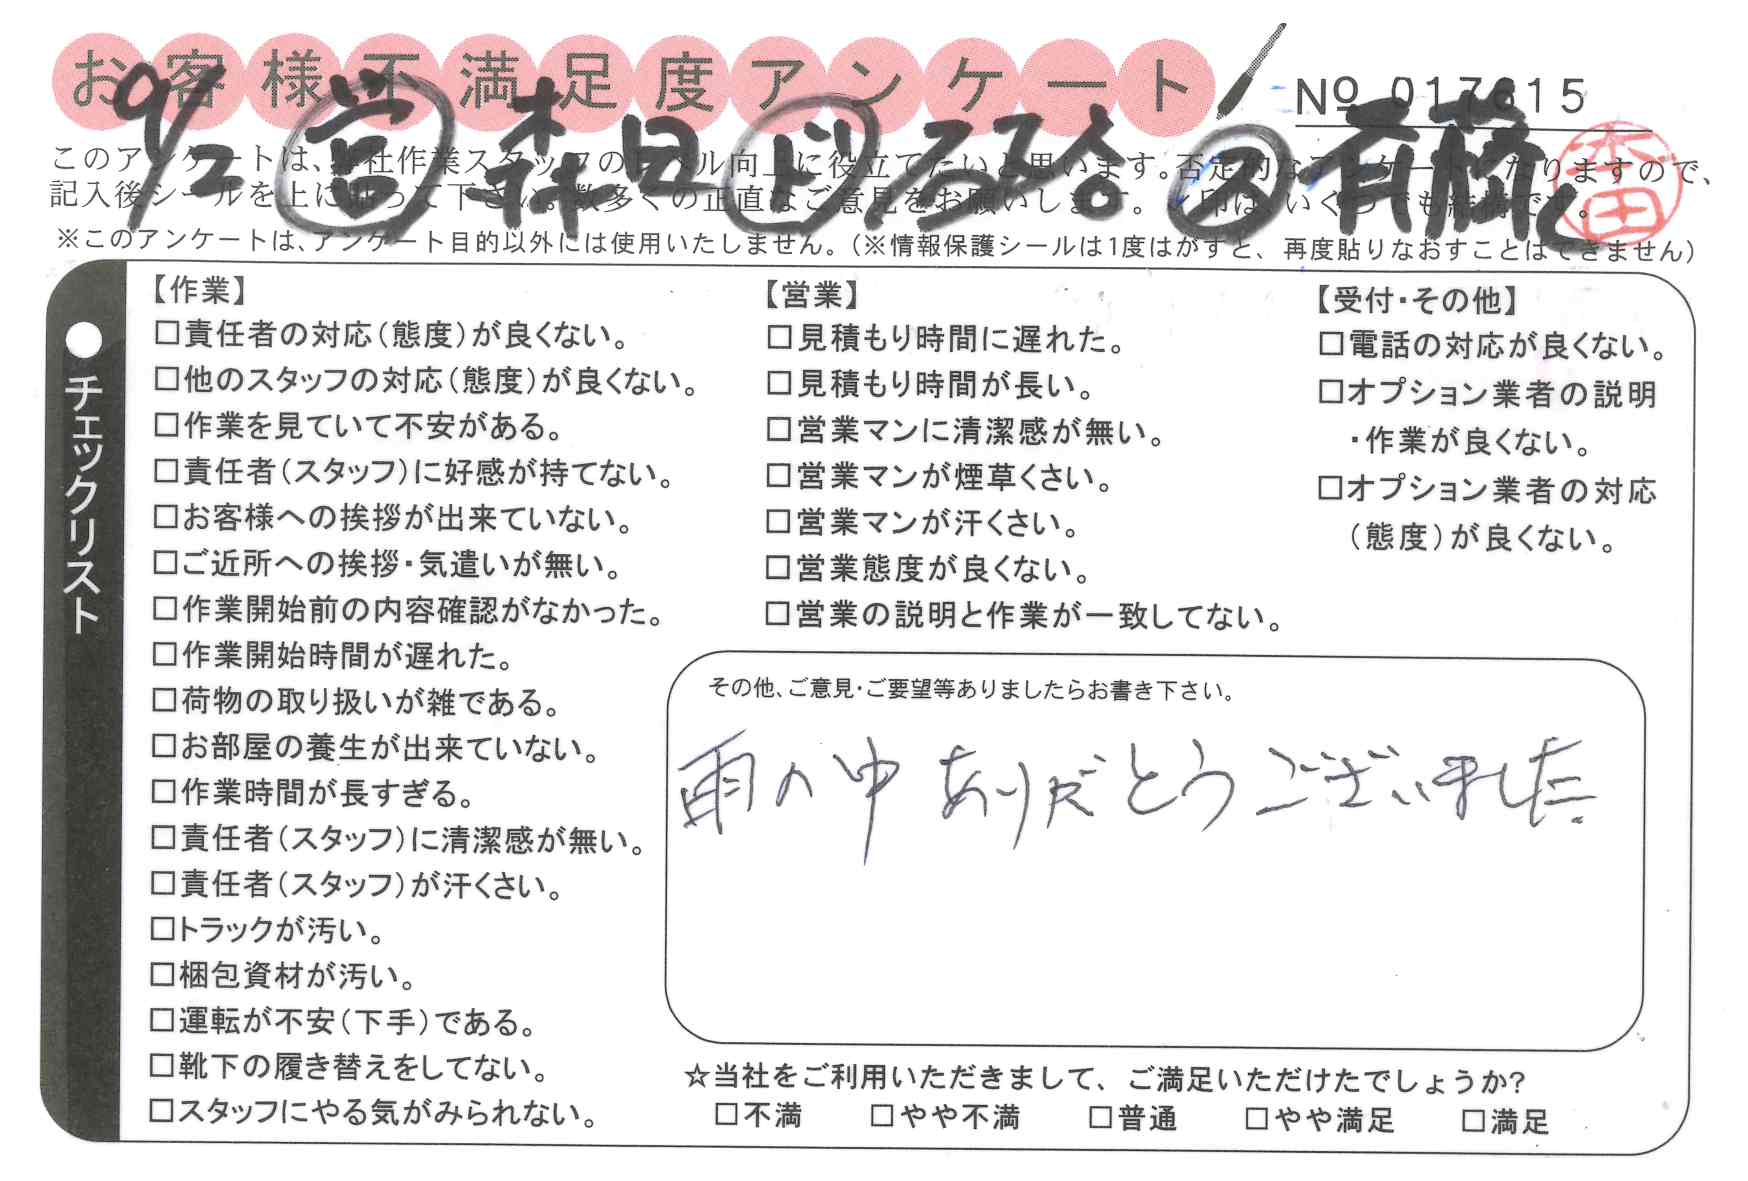 お客様不満足度アンケート
No 017615
9/2 営 森田 ド 又 斉藤
このアンケートは、弊社作業スタッフのレベル向上に役立てたいと思います。否定的なアンケートになりますので、
記入後シールを上に貼って下さい。数多くの正直なご意見をお願いします。 印は、いくつでも結構です。
※このアンケートは、アンケート目的以外には使用いたしません。(※情報保護シールは1度はがすと、再度貼りなおすことはできません)
●チェックリスト
【作業】
□責任者の対応(態度)が良くない。
□他のスタッフの対応(態度)が良くない。
□作業を見ていて不安がある。
□責任者(スタッフ)に好感が持てない。
□お客様への挨拶が出来ていない。
□ご近所への挨拶・気遣いが無い。
□作業開始前の内容確認がなかった。
□作業開始時間が遅れた。
□荷物の取り扱いが雑である。
□お部屋の養生が出来ていない。
□作業時間が長すぎる。
□責任者(スタッフ)に清潔感が無い。
□責任者(スタッフ)が汗くさい。
□トラックが汚い。
□梱包資材が汚い。
□運転が不安(下手)である。
□靴下の履き替えをしてない。
□スタッフにやる気がみられない。
【営業】
□見積もり時間に遅れた。
□見積もり時間が長い。
□営業マンに清潔感が無い。
□営業マンが煙草くさい。
□営業マンが汗くさい。
□営業態度が良くない。
□営業の説明と作業が一致してない。
【受付・その他】
□電話の対応が良くない。
□オプション業者の説明
・作業が良くない。
□オプション業者の対応
(態度)が良くない。
その他、ご意見・ご要望等ありましたらお書き下さい。
雨の中 ありがとうございました
☆当社をご利用いただきまして、ご満足いただけたでしょうか?
□不満 □やや不満 □普通 □やや満足 □満足